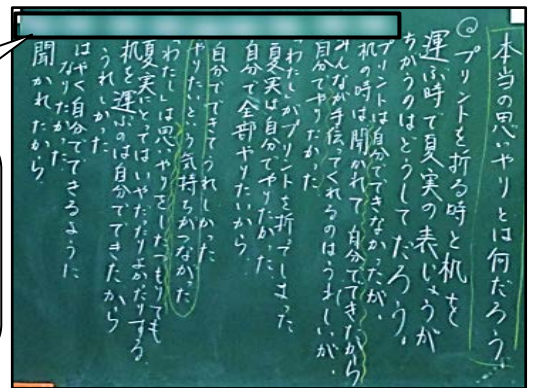 本当の思いやりとは何だろう。
◎プリントを折る時と机を
運ぶ時で夏実の表じょうが
ちがうのはどうしてだろう。
プリントは自分でできなかったが、
机の時は聞かれて、自分でできたから
みんなが手伝ってくれるのはうれしいが、
自分でやりたかった
わたしがプリントを折ってしまった
夏実は自分でやりたかった
自分で全部やりたいから
自分でできてうれしかった
やりたいという気持ちがつながった
「わたし」は思いやりをしたつもりでも
夏実にとってはいやだったりよかったりする
机を運ぶのは自分でできたから
うれしかった
はやく自分でできるように
なりたかった
聞かれたから